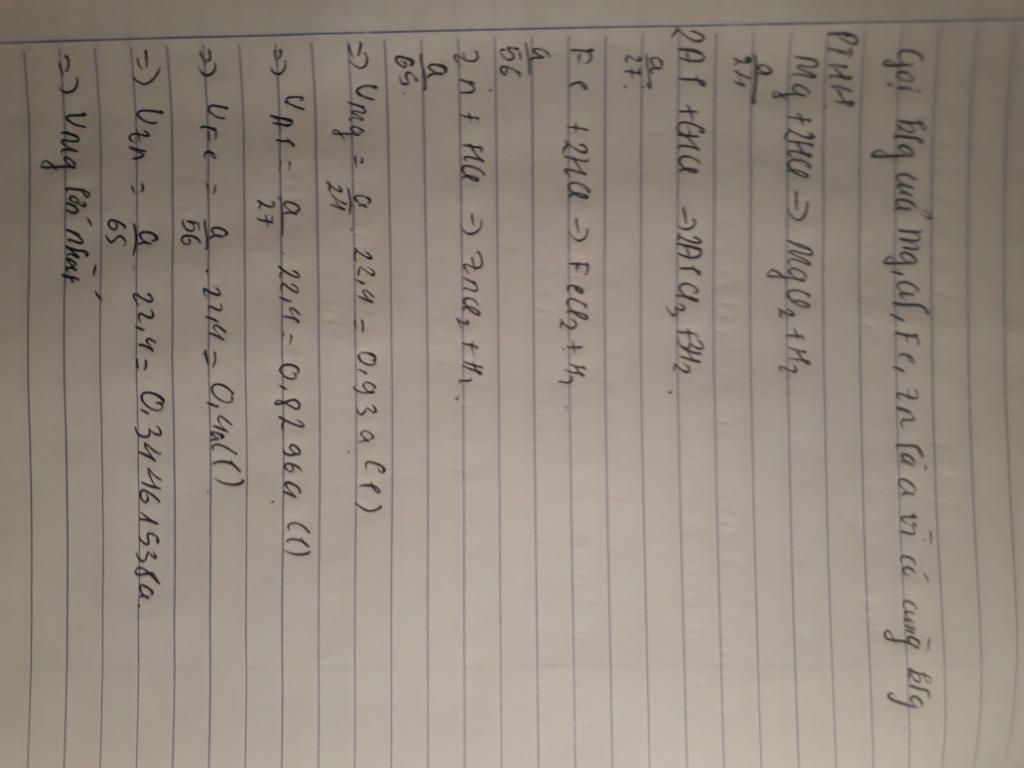 Gọi klg của Mg, Al, Fe, Zn là a vì có cùng klg
PTHH
Mg + 2HCl => MgCl2 + H2
a/24
2Al + 6HCl => 2AlCl3 + 3H2
a/27
Fe + 2HCl => FeCl2 + H2
a/56
Zn + HCl => ZnCl2 + H2
a/65
=> VMg = a/24 . 22,4 = 0,93a (l)
=> VAl = a/27 . 22,4 = 0,8296a (l)
=> VFe = a/56 . 22,4 = 0,4a (l)
=> VZn = a/65 . 22,4 = 0,344615358a
=> VMg lớn nhất